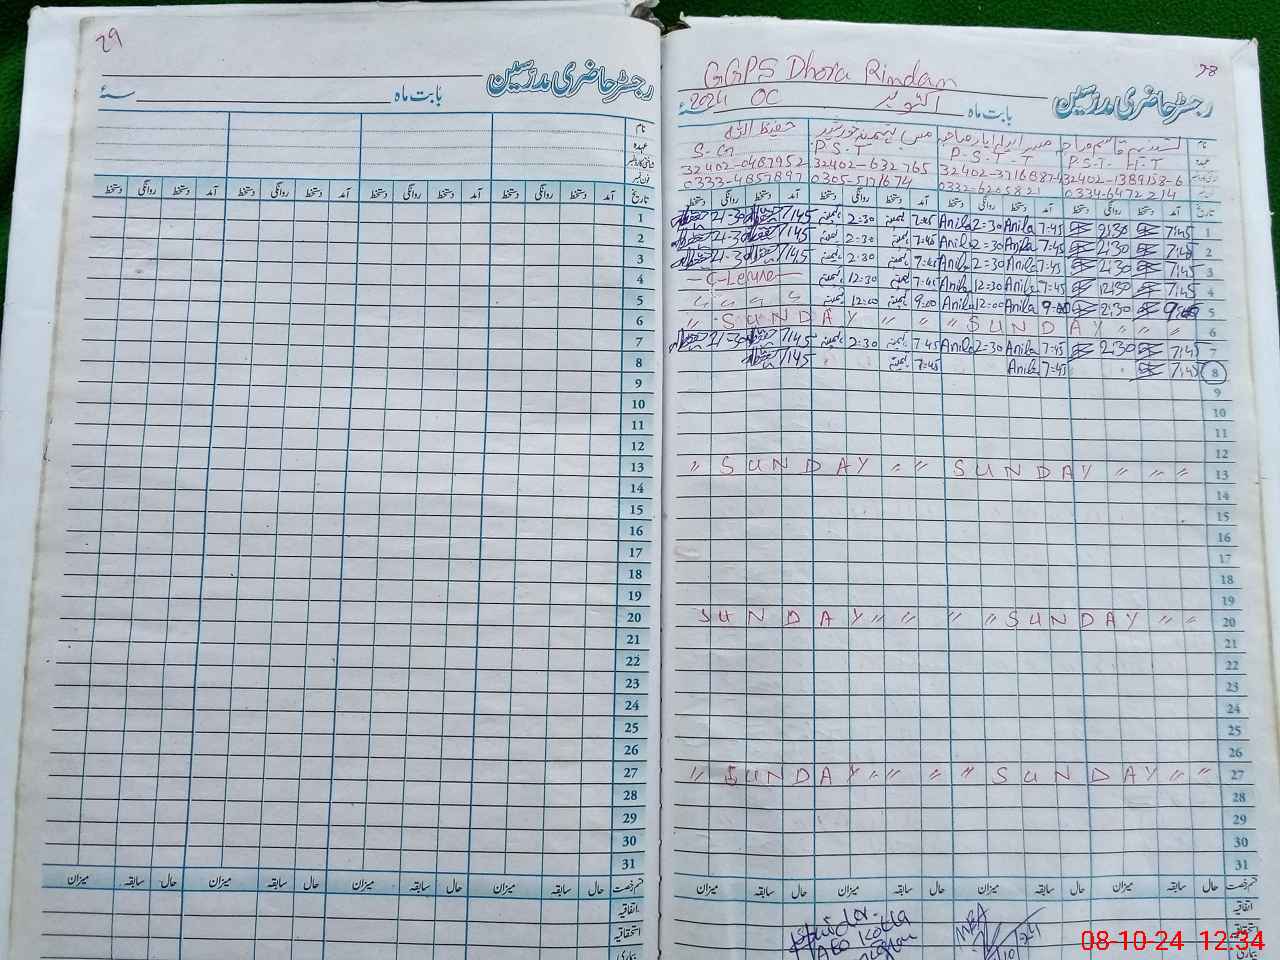 29
رجسٹر حاضری مدرسین
بابت ماہ ____ سنہ
نام
عہدہ
تاریخ آمد دستخط روانگی دستخط آمد دستخط روانگی دستخط آمد دستخط روانگی دستخط آمد دستخط روانگی دستخط
1
2
3
4
5
6
7
8
9
10
11
12
13
14
15
16
17
18
19
20
21
22
23
24
25
26
27
28
29
30
31
قسم رخصت حال سابقہ میزان حال سابقہ میزان حال سابقہ میزان حال سابقہ میزان
اتفاقیہ
استحقاقیہ
بیماری
28
GGPS Dhora Rindan
رجسٹر حاضری مدرسین
بابت ماہ اکتوبر OC 2024 سنہ
نام حفیظ اللہ
عہدہ S.G P.S.T P.S.T.T P.S.T. H.T
32402-0487952 32402-632765 32402-3716887-4 32402-1389158-6
0333-4857897 0305-5171674 0332-6205821 0334-6472214
تاریخ آمد دستخط روانگی دستخط آمد دستخط روانگی دستخط آمد دستخط روانگی دستخط آمد دستخط روانگی دستخط
2-30 7/45 2=30 7=45 Anila 2=30 Anila 7=45 2:30 7:45 1
2-30 7/45 2=30 7=45 Anila 2=30 Anila 7=45 2:30 7:45 2
2-30 7/45 2=30 7=45 Anila 2=30 Anila 7=45 2:30 7:45 3
12=30 7=45 Anila 12=30 Anila 7=45 12:30 7:45 4
12=00 9=00 Anila 12=00 Anila 9=00 2:30 5
〃 SUNDAY 〃 〃 〃 SUNDAY 〃 〃 〃 6
2-30 7/45 2=30 7=45 Anila 2=30 Anila 7=45 2:30 7:45 7
7/45 7=45 Anila 7=45 7:45 8
9
10
11
12
〃 SUNDAY 〃 〃 SUNDAY 〃 〃 〃 13
14
15
16
17
18
19
SUNDAY 〃 〃 〃 〃 SUNDAY 〃 〃 20
21
22
23
24
25
26
〃 SUNDAY 〃 〃 〃 〃 SUNDAY 〃 〃 27
28
29
30
31
قسم رخصت حال سابقہ میزان حال سابقہ میزان حال سابقہ میزان حال سابقہ میزان
اتفاقیہ
استحقاقیہ
AEO Kotla
بیماری
08-10-24 12:34